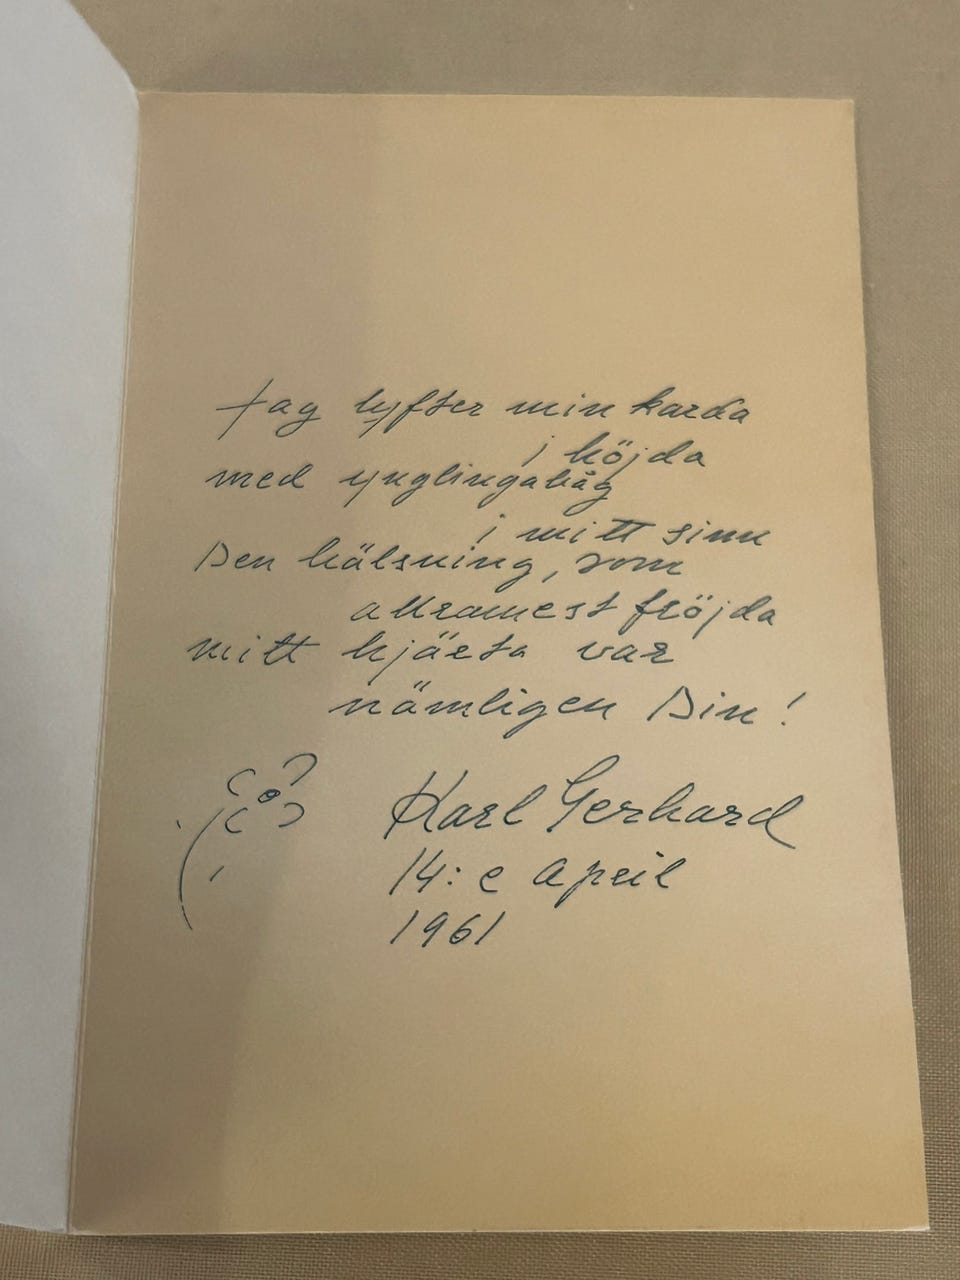 Jag lyfter min karda
i höjda
med ynglingahåg
i mitt sinn
Den hälsning, som
allramest fröjda
mitt hjärta var
nämligen Din!
Karl Gerhard
14:e April
1961